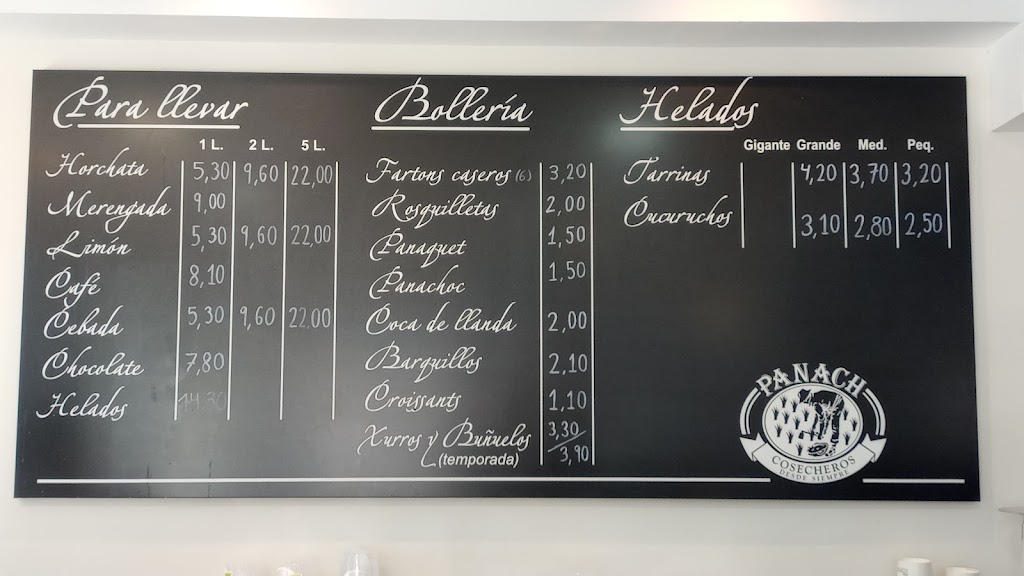 Para llevar
1 L. 2 L. 5 L.
Horchata 5,30 9,60 22,00
Merengada 9,00
Limón 5,30 9,60 22,00
Café 8,10
Cebada 5,30 9,60 22.00
Chocolate 7,80
Helados 14.30
Bollería
Fartons caseros (6) 3,20
Rosquilletas 2,00
Panaquet 1,50
Panachoc 1,50
Coca de llanda 2,00
Barquillos 2,10
Croissants 1,10
Xurros y Buñuelos 3,30/3,90
(temporada)
Helados
Gigante Grande Med. Peq.
Tarrinas 4,20 3,70 3,20
Cucuruchos 3,10 2,80 2,50
PANACH
COSECHEROS
DESDE SIEMPRE